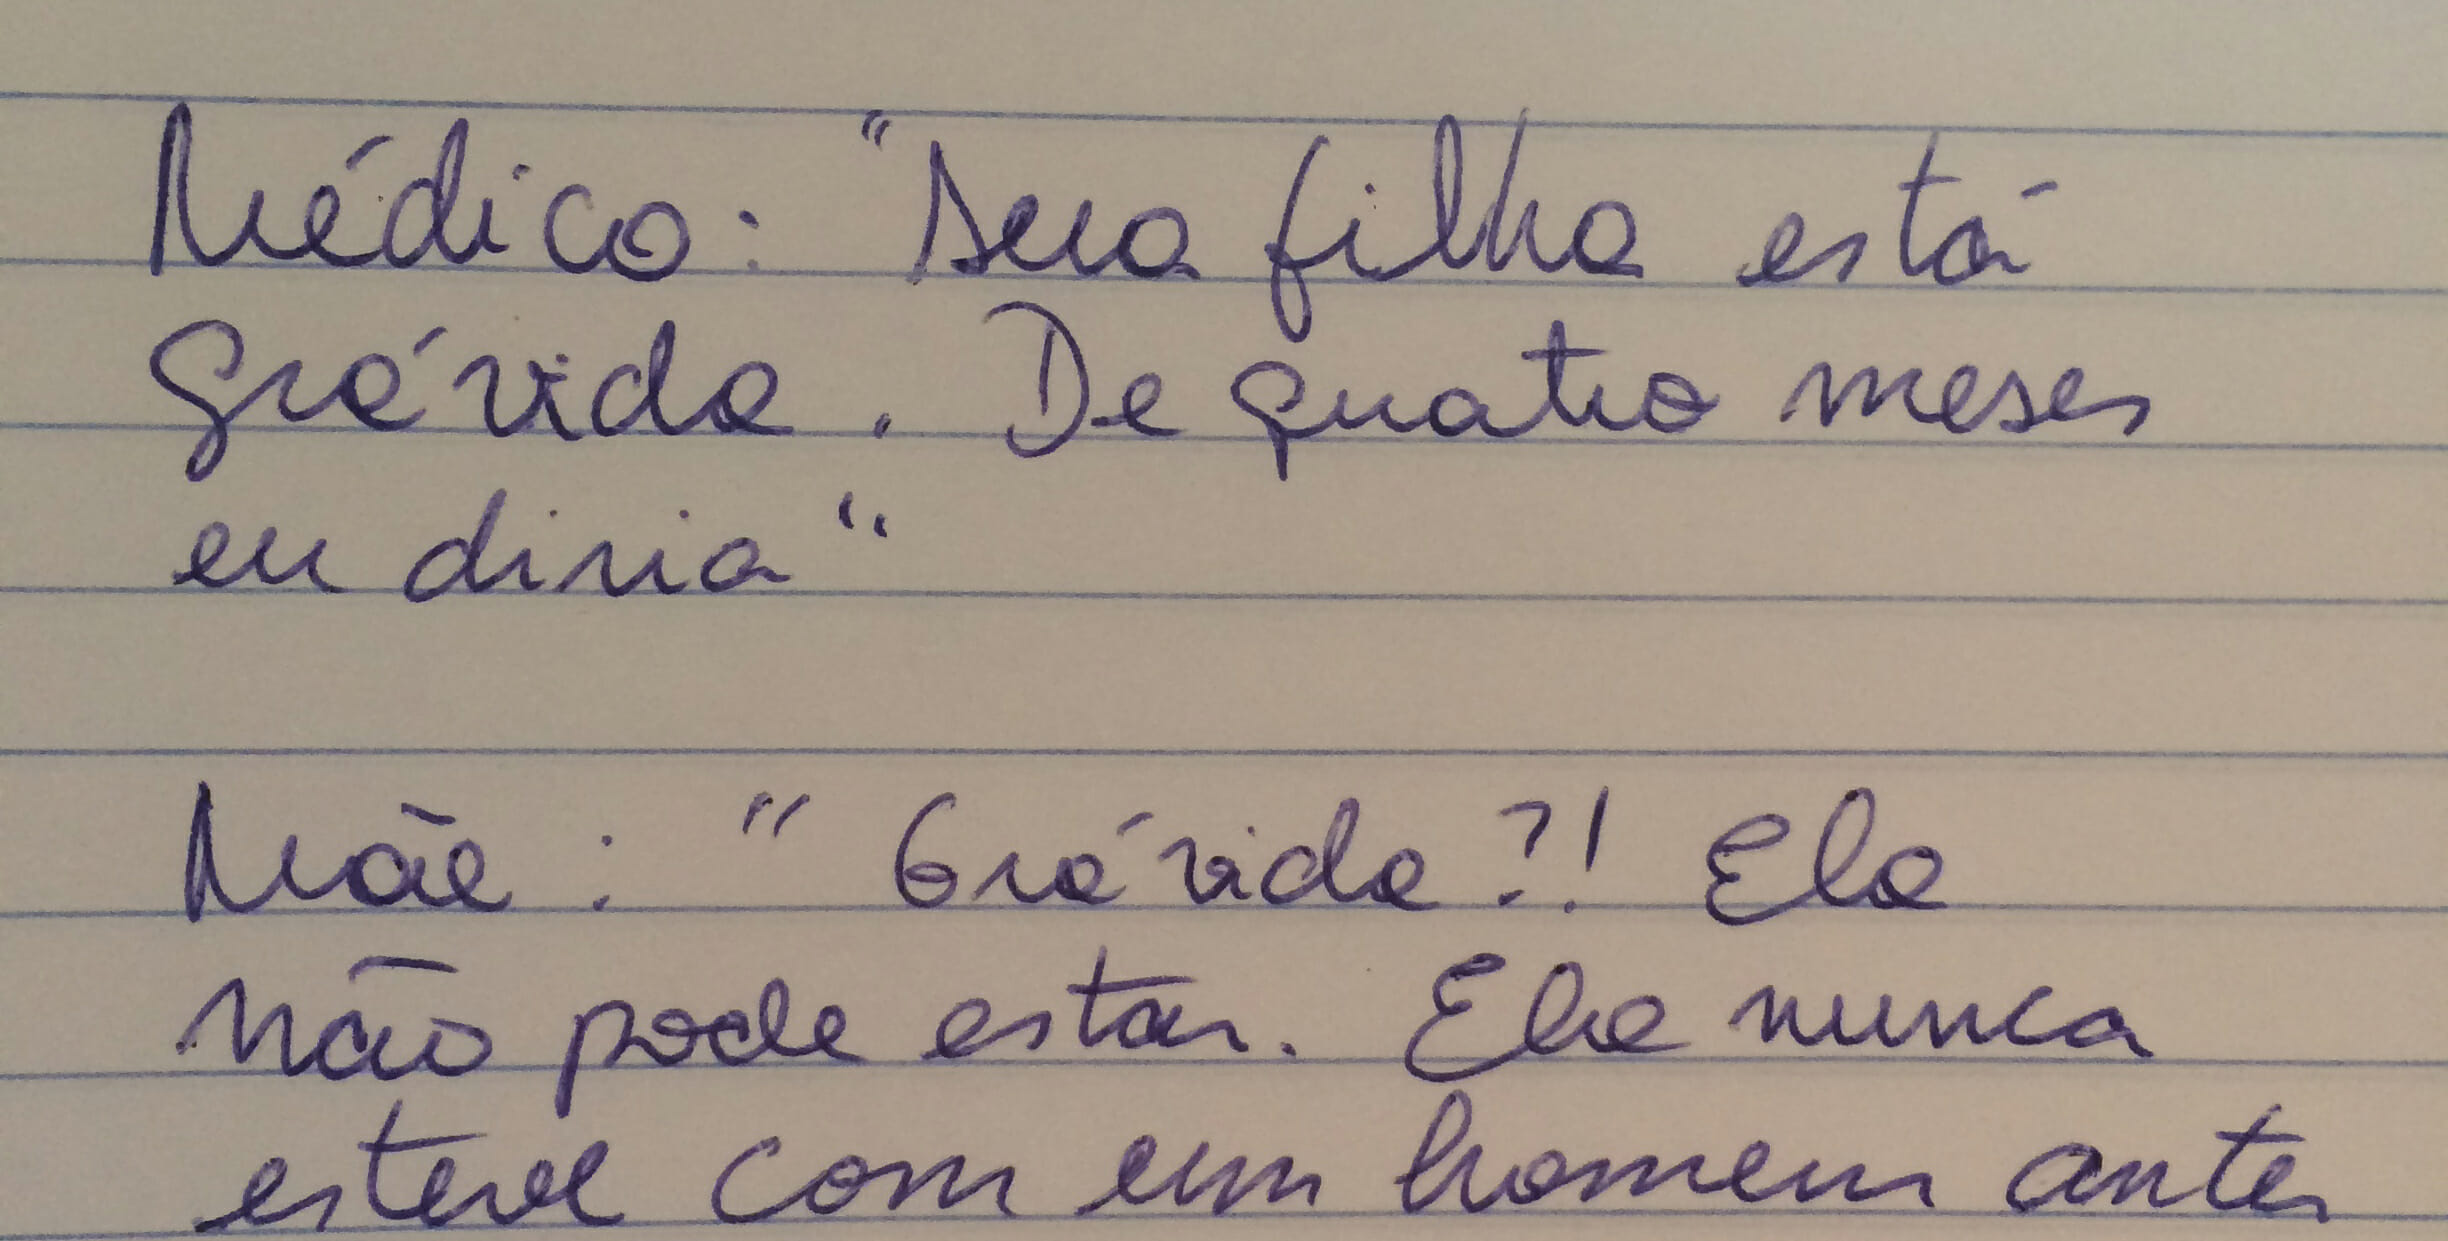 Médico: "Sua filha está
grávida. De quatro meses
eu diria"
Mãe: "Grávida?! Ela
não pode estar. Ela nunca
esteve com um homem antes